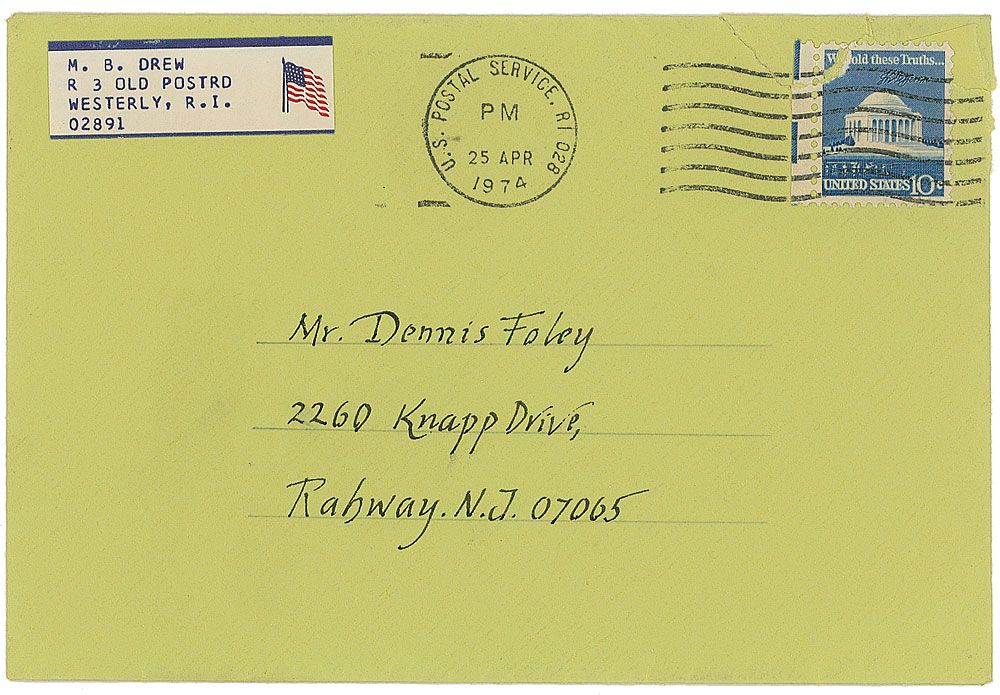 M. B. DREW
R 3 OLD POSTRD
WESTERLY, R.I.
02891
U.S. POSTAL SERVICE, RI 028
PM
25 APR
1974
We hold these Truths...
UNITED STATES 10c
Mr. Dennis Foley
2260 Knapp Drive,
Rahway. N.J. 07065